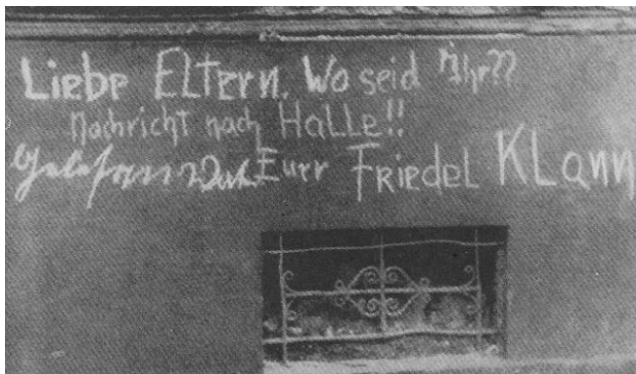 Liebe Eltern. Wo seid Ihr??
Nachricht nach Halle!!
Eure Friedel Klann